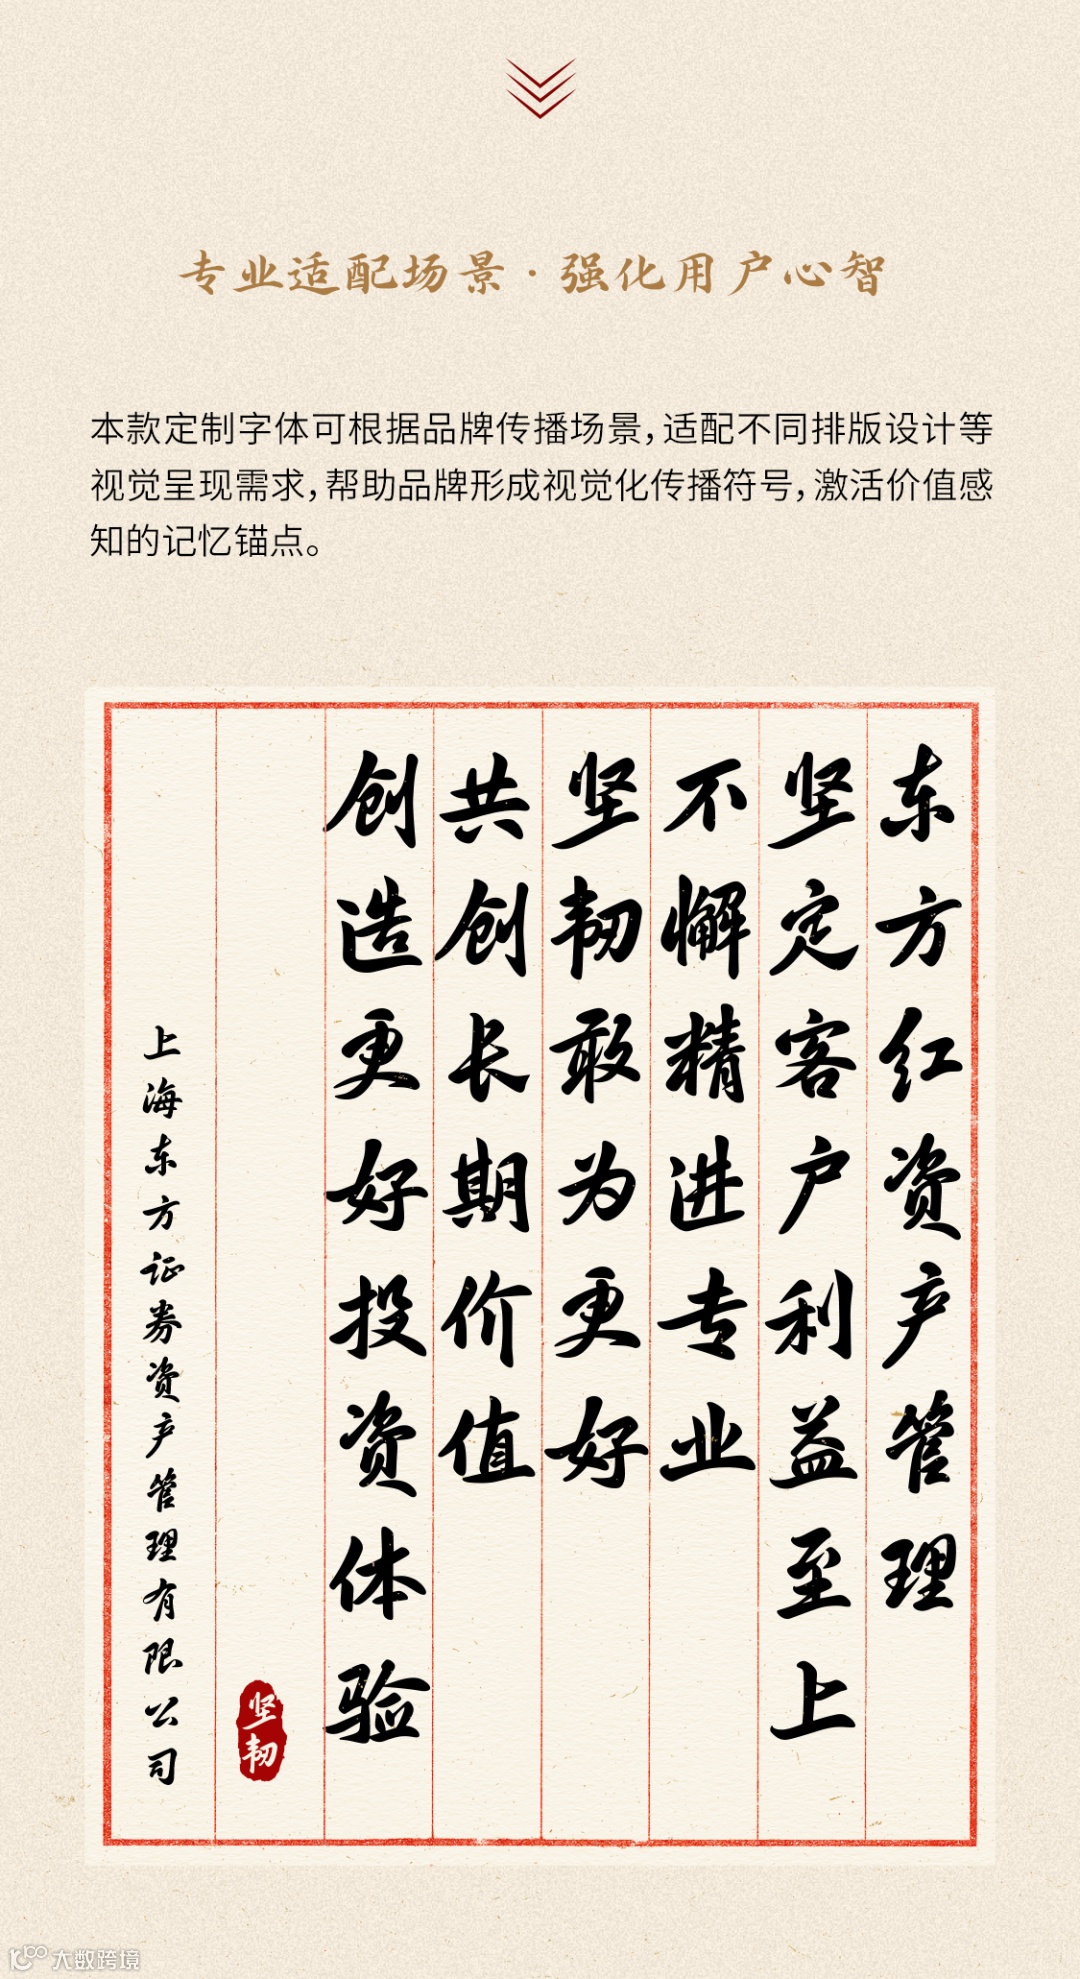 专业适配场景·强化用户心智
本款定制字体可根据品牌传播场景，适配不同排版设计等
视觉呈现需求，帮助品牌形成视觉化传播符号，激活价值感
知的记忆锚点。
东方红资产管理
坚定客户利益至上
不懈精进专业
坚韧敢为更好
共创长期价值
创造更好投资体验
坚韧
上海东方证券资产管理有限公司
大数跨境